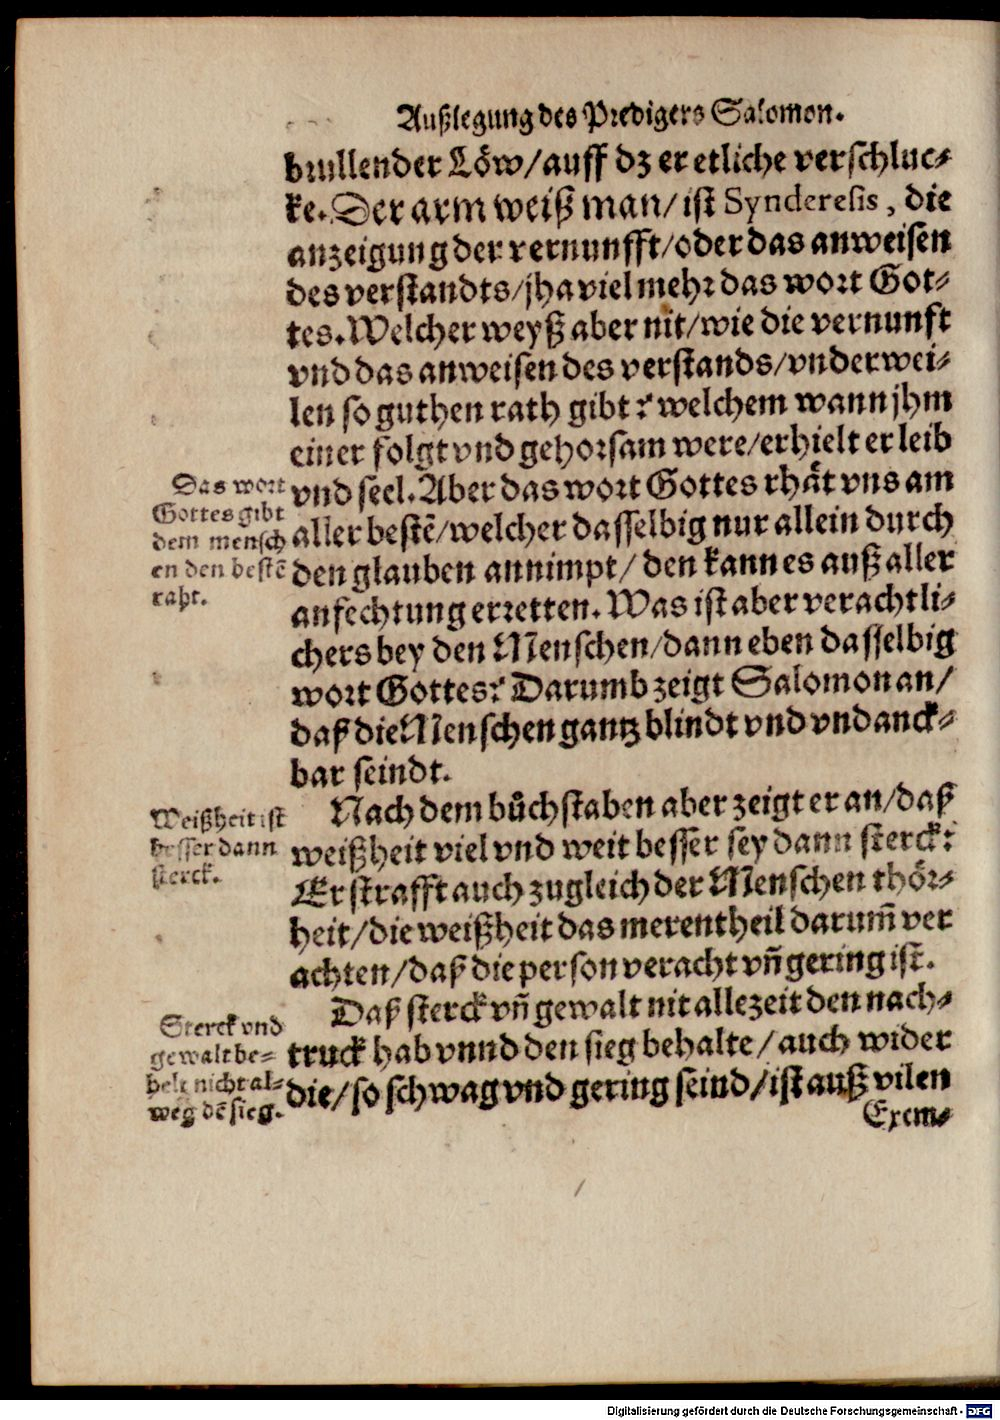 Außlegung des Predigers Salomon.
brüllender Löw/auff dz er etliche verschluc⸗
ke. Der arm weiß man/ist Synderesis, die
anzeigung der vernunfft/oder das anweisen
des verstandts/jha viel mehr das wort Got⸗
tes. Welcher weyß aber nit/wie die vernunft
vnd das anweisen des verstands/vnderwei⸗
len so guthen rath gibt? welchem wann jhm
einer folgt vnd gehorsam were/erhielt er leib
Das wort
Gottes gibt
dem mensch
en den bestē
raht.
vnd seel. Aber das wort Gottes rhåt vns am
aller bestē/welcher dasselbig nur allein durch
den glauben annimpt/den kann es auß aller
anfechtung erretten. Was ist aber verachtli⸗
chers bey den Menschen/dann eben dasselbig
wort Gottes? Darumb zeigt Salomon an/
daß die Menschen gantz blindt vnd vndanck⸗
bar seindt.
Weißheit ist
besser dann
sterck.
Nach dem bůchstaben aber zeigt er an/daß
weißheit viel vnd weit besser sey dann sterck:
Er strafft auch zugleich der Menschen thör⸗
heit/die weißheit das merentheil darum̄ ver
achten/daß die person veracht vn̄ gering ist.
Sterck vnd
gewalt be⸗
helt nicht al⸗
weg dē sieg.
Daß sterck vn̄ gewalt nit allezeit den nach⸗
truck hab vnnd den sieg behalte/auch wider
die/so schwag vnd gering seind/ist auß vilen
Exem⸗
Digitalisierung gefördert durch die Deutsche Forschungsgemeinschaft - DFG